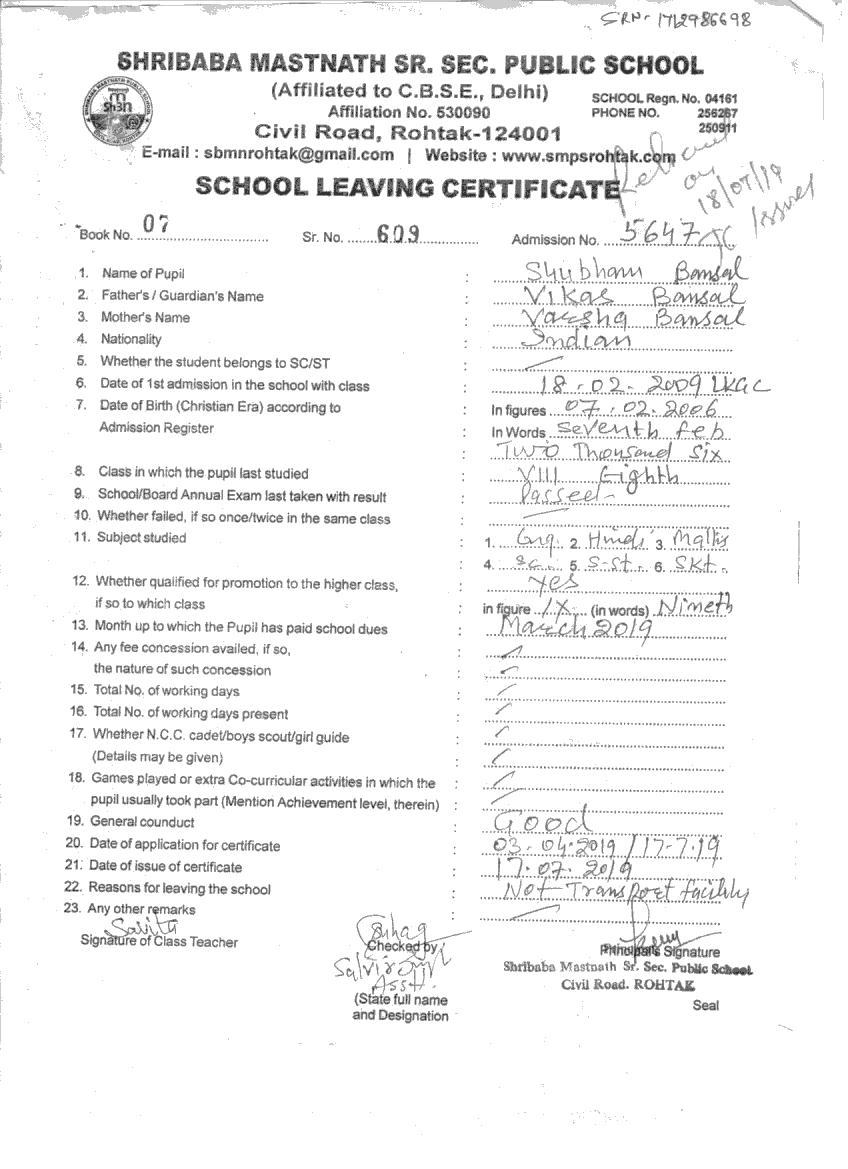 SRN- 1712986698
SHRIBABA MASTNATH SR. SEC. PUBLIC SCHOOL
(Affiliated to C.B.S.E., Delhi)
SCHOOL Regn. No. 04161
Affiliation No. 530090
PHONE NO. 256267
250911
Civil Road, Rohtak-124001
E-mail : sbmnrohtak@gmail.com | Website : www.smpsrohtak.com
on
18/07/19
SCHOOL LEAVING CERTIFICATE
Book No. 07 Sr. No. 609 Admission No. 5647
1. Name of Pupil : Shubham Bansal
2. Father's / Guardian's Name : Vikas Bansal
3. Mother's Name : Varsha Bansal
4. Nationality : Indian
5. Whether the student belongs to SC/ST : —
6. Date of 1st admission in the school with class : 18.02.2009 LKG
7. Date of Birth (Christian Era) according to : In figures 07.02.2006
Admission Register : In Words Seventh feb
Two Thousand Six
8. Class in which the pupil last studied : VIII Eighth
9. School/Board Annual Exam last taken with result : Passed
10. Whether failed, if so once/twice in the same class : —
11. Subject studied : 1. Eng 2. Hindi 3. Maths
4. Sc. 5. S-St. 6. Skt.
12. Whether qualified for promotion to the higher class, : Yes
if so to which class : in figure IX (in words) Nineth
13. Month up to which the Pupil has paid school dues : March 2019
14. Any fee concession availed, if so,
the nature of such concession :
15. Total No. of working days :
16. Total No. of working days present :
17. Whether N.C.C. cadet/boys scout/girl guide :
(Details may be given) :
18. Games played or extra Co-curricular activities in which the :
pupil usually took part (Mention Achievement level, therein) :
19. General counduct : Good
20. Date of application for certificate : 03.04.2019 / 17-7-19
21. Date of issue of certificate : 17.07.2019
22. Reasons for leaving the school : Not Transport facility
23. Any other remarks : —
Savita
Signature of Class Teacher
Checked by
Asstt.
(State full name
and Designation
Principal's Signature
Shribaba Mastnath Sr. Sec. Public School
Civil Road. ROHTAK
Seal